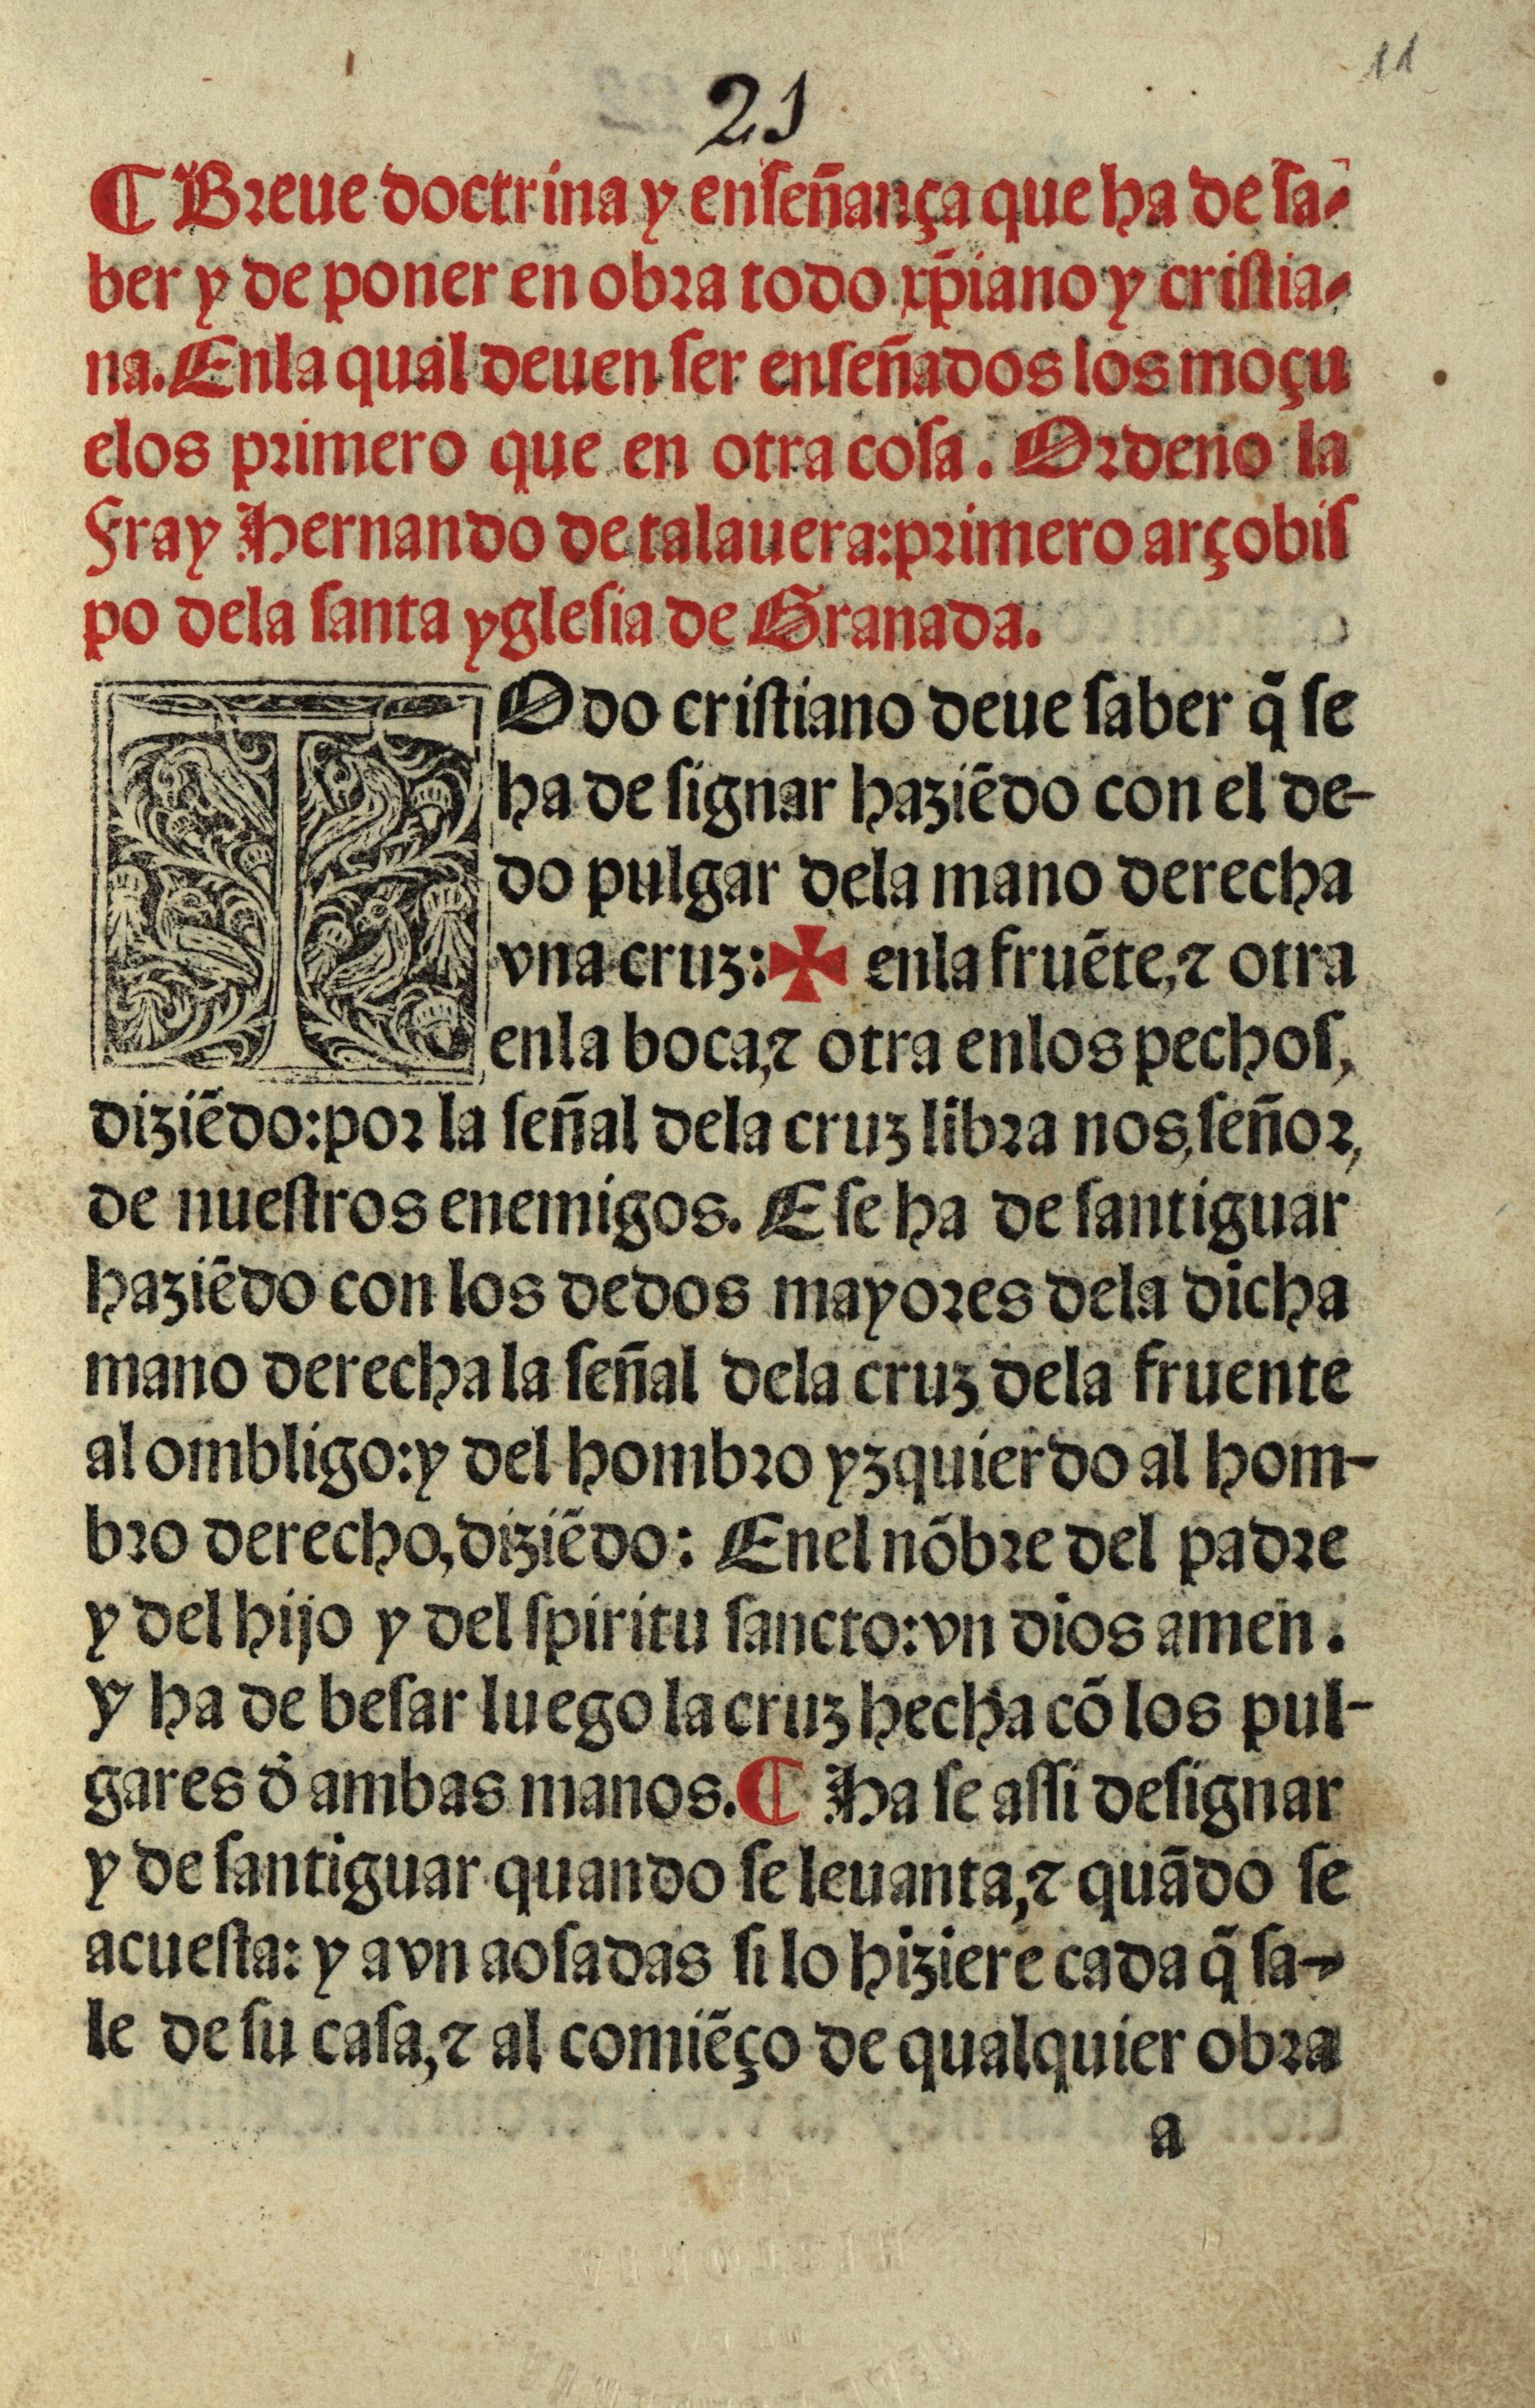 11
21
¶ Breue doctrina y enseñança que ha de sa-
ber y de poner en obra todo xp̄iano y cristia-
na. Enla qual deuen ser enseñados los moçu
elos primero que en otra cosa. Ordeno la
Fray Hernando de talauera: primero arçobis
po dela santa yglesia de Granada.
TOdo cristiano deue saber q̃ se
ha de signar haziẽdo con el de-
do pulgar dela mano derecha
vna cruz: ✠ enla fruẽte, ⁊ otra
enla boca, ⁊ otra enlos pechos,
diziẽdo: por la señal dela cruz libra nos, señor,
de nuestros enemigos. E se ha de santiguar
haziẽdo con los dedos mayores dela dicha
mano derecha la señal dela cruz dela fruente
al ombligo: y del hombro yzquierdo al hom-
bro derecho, diziẽdo: Enel nõbre del padre
y del hijo y del spiritu sancto: vn dios amen.
Y ha de besar luego la cruz hecha cõ los pul-
gares d̃ ambas manos. ¶ Ha se assi designar
y de santiguar quando se leuanta, ⁊ quãdo se
acuesta: y avn aosadas si lo hiziere cada q̃ sa-
le de su casa, ⁊ al comiẽço de qualquier obra
a